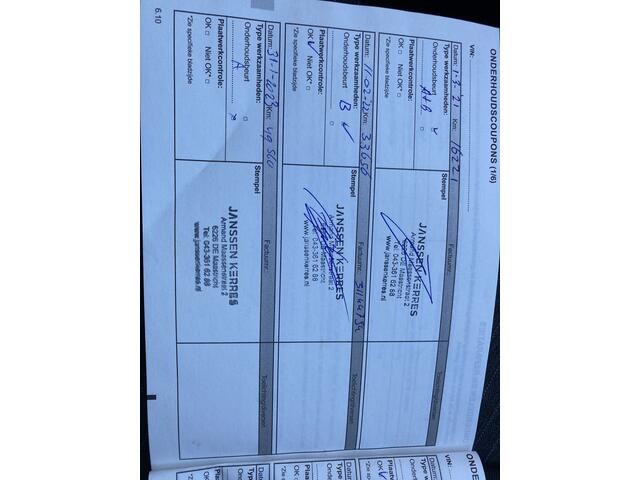 ONDERHOUDSCOUPONS (1/6)
VIN:
Datum: 1-3-'21 Km: 16221 Factuurnr: Toelichting/diversen
Type werkzaamheden: Stempel
Onderhoudsbeurt A+B
Plaatwerkcontrole:
OK □ Niet OK* □
*Zie specifieke bladzijde
JANSSEN KERRES
Armand Maassenstraat 2
6226 DE Maastricht
Tel. 043-361 62 88
www.janssenkerres.nl
Datum: 11-02-22 Km: 33656 Factuurnr: Toelichting/diversen
Type werkzaamheden: Stempel
Onderhoudsbeurt B ✓
Plaatwerkcontrole:
OK ✓ Niet OK* □
*Zie specifieke bladzijde
JANSSEN KERRES
Tel. 043-361 62 88
www.janssenkerres.nl
Datum: 31-1-2023 Km: 49 560 Factuurnr: Toelichting/diversen
Type werkzaamheden: Stempel
Onderhoudsbeurt A
Plaatwerkcontrole:
OK □ Niet OK* □
*Zie specifieke bladzijde
JANSSEN KERRES
Armand Maassenstraat 2
6226 DE Maastricht
Tel. 043-361 62 88
www.janssenkerres.nl
6.10
VIN:
Datum:
Type
Onderh
Plaatwe
OK
*Zie spec
Datum:
Type w
Onderh
Plaatw
OK □
*Zie spe